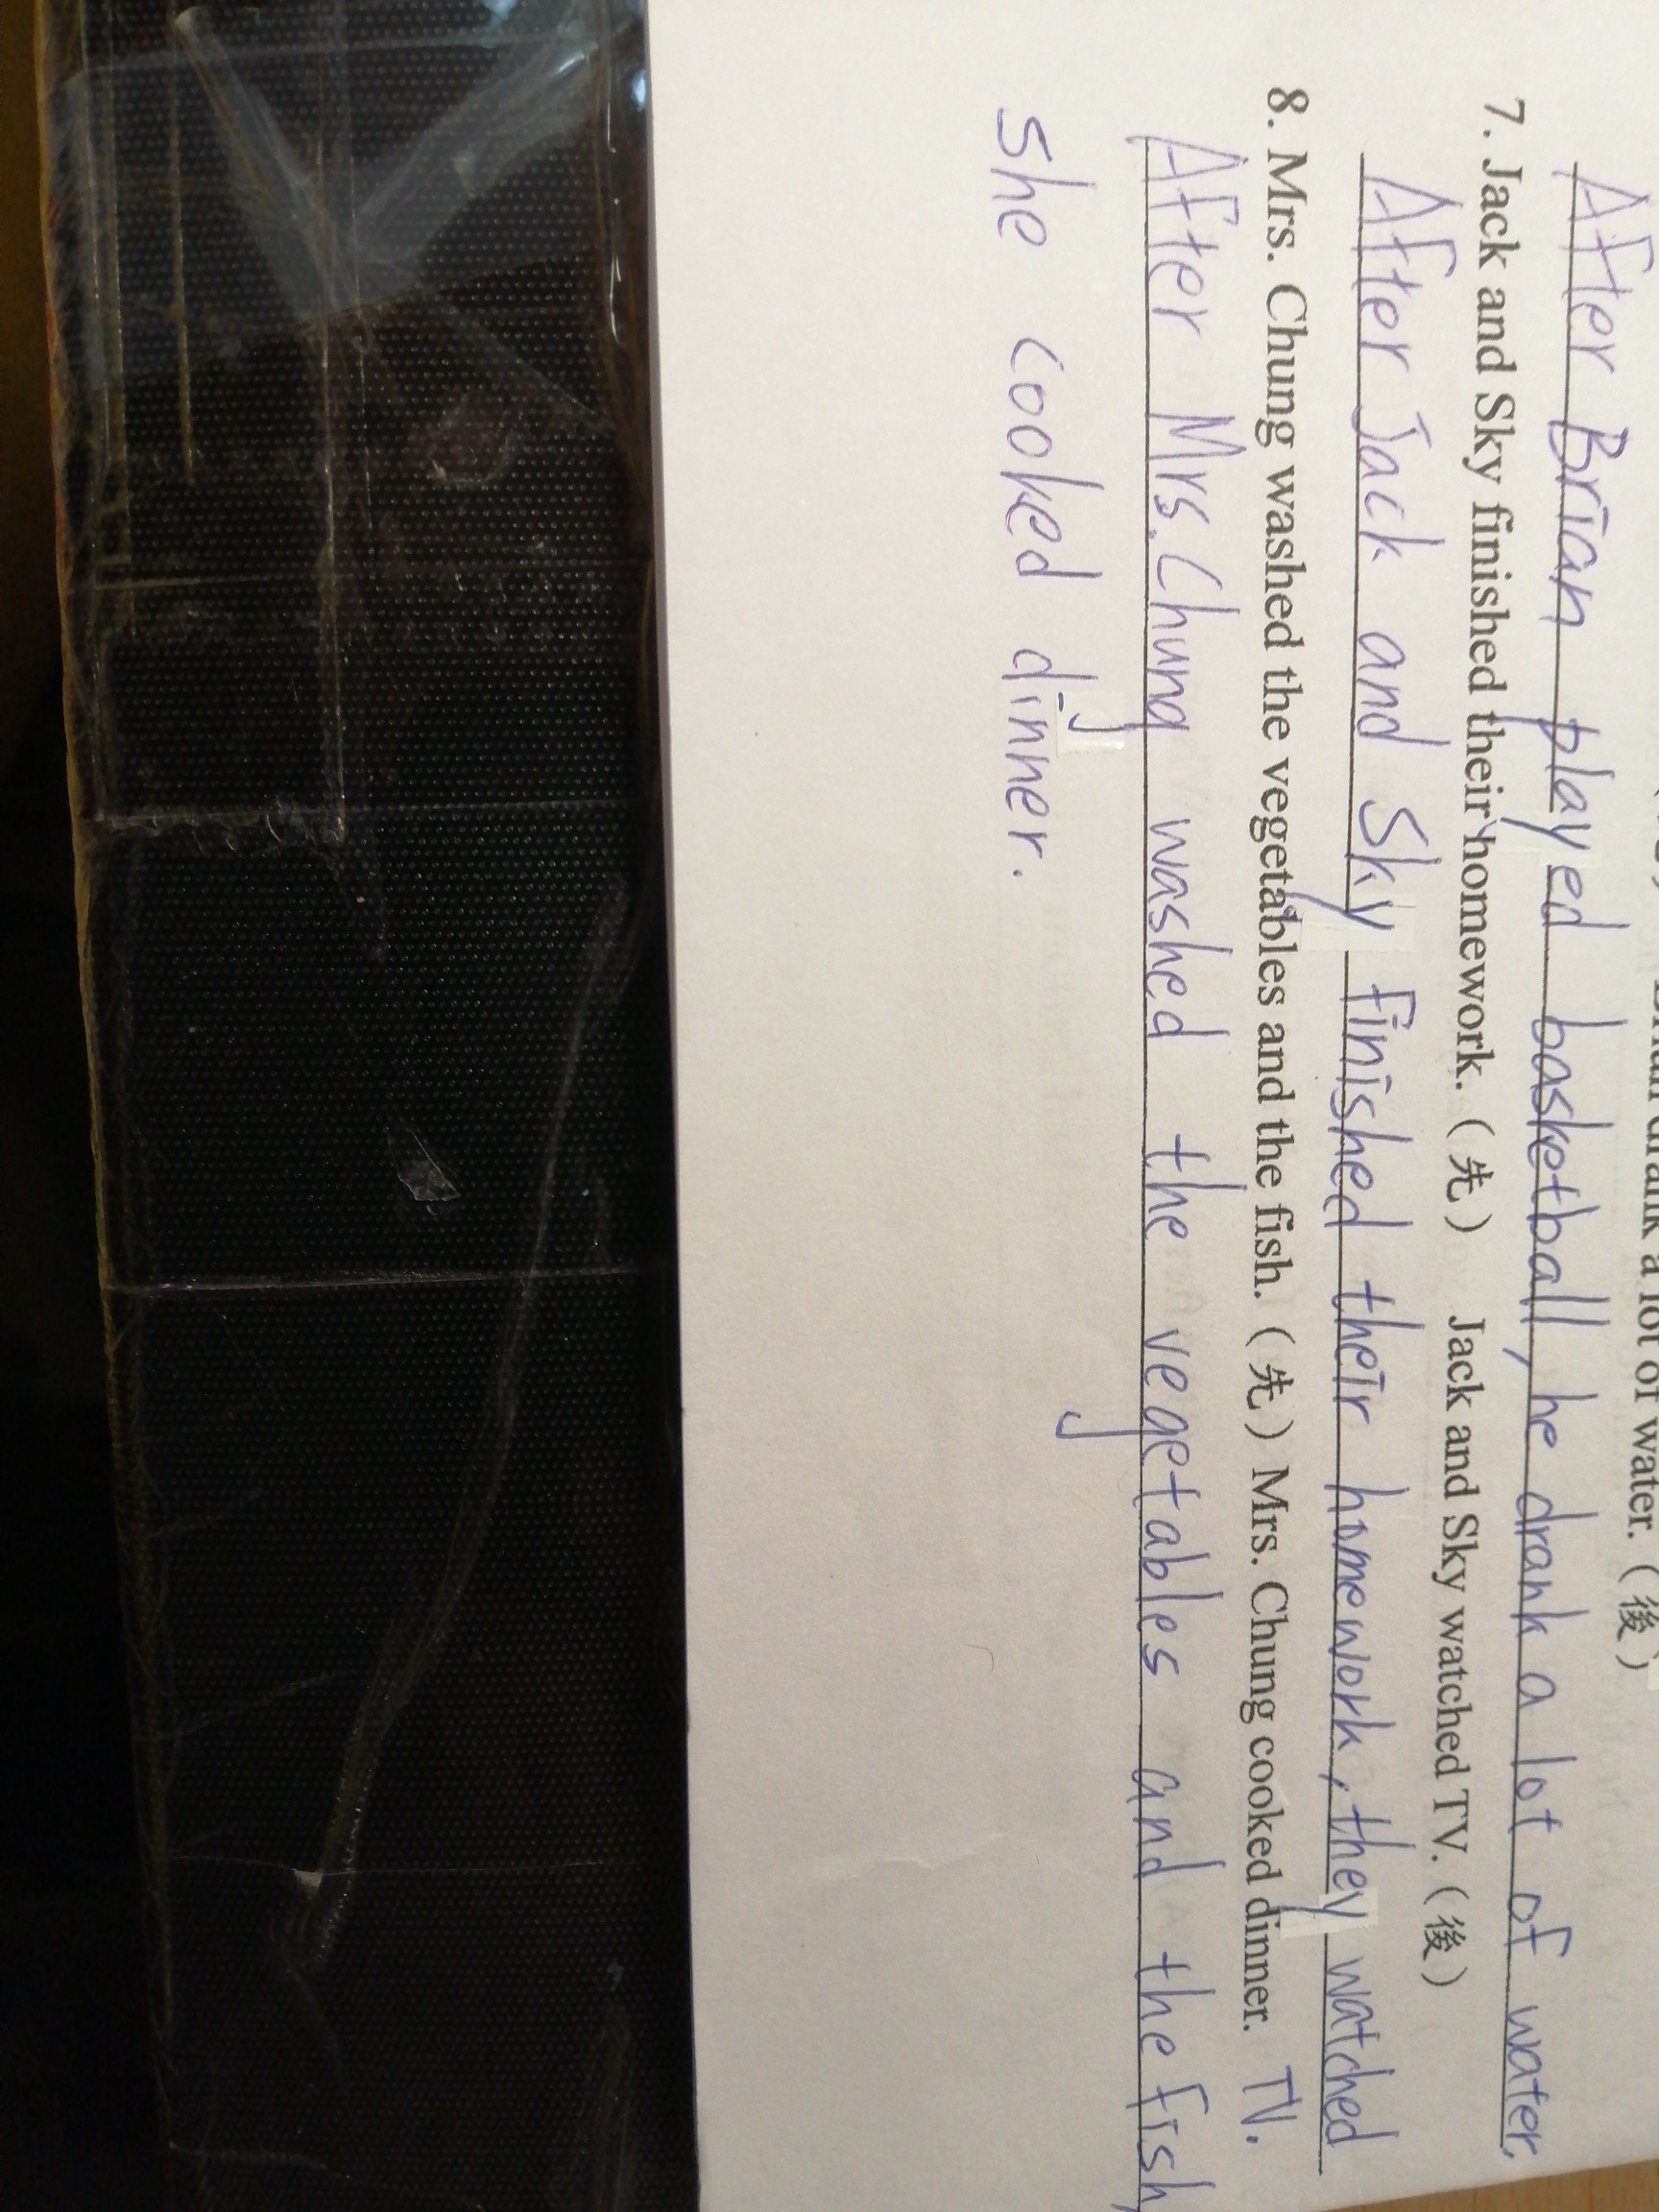 drank a lot of water. (後)
After Brian played basketball, he drank a lot of water.
7. Jack and Sky finished their homework. (先) Jack and Sky watched TV. (後)
After Jack and Sky finished their homework, they watched
TV.
8. Mrs. Chung washed the vegetables and the fish. (先) Mrs. Chung cooked dinner.
After Mrs. Chung washed the vegetables and the fish,
she cooked dinner.